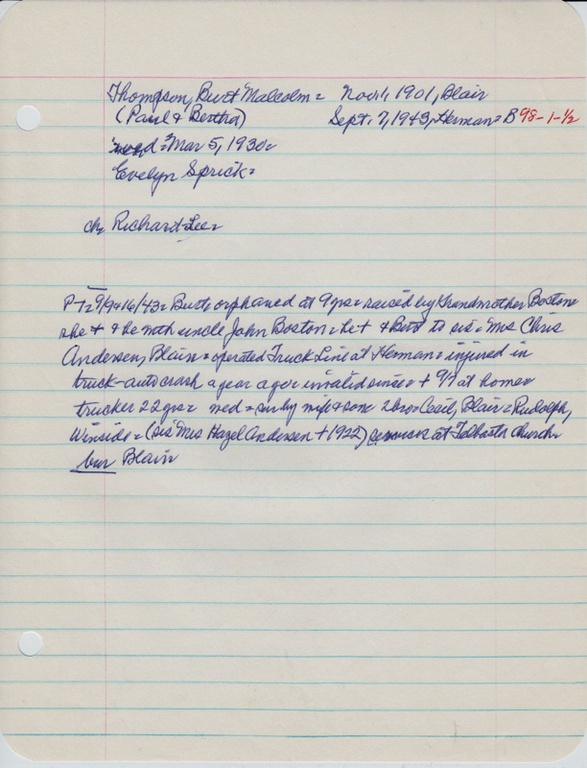 Thompson, Burt Malcolm = Nov 1, 1901, Blair
(Paul & Bertha) Sept. 7, 1943, Herman = B 98-1-1/2
wed = Mar 5, 1930 =
Evelyn Sprick =
ch Richard Lee =
P-T = 9/9 & 16/43 = Burt, orphaned at 9 yrs = raised by Grandmother Boston
she + & he with uncle John Boston = he + & Burt to sis = Mrs Chris
Andersen, Blair = operated Truck Line at Herman = injured in
truck-auto crash a year ago = invalid since = + 9/7 at home =
trucker 22 yrs = wed = sur by wife & son = 2 bro = Cecil, Blair = Rudolph,
Winside = (sis Mrs Hazel Andersen + 1922) services at church =
bur Blair